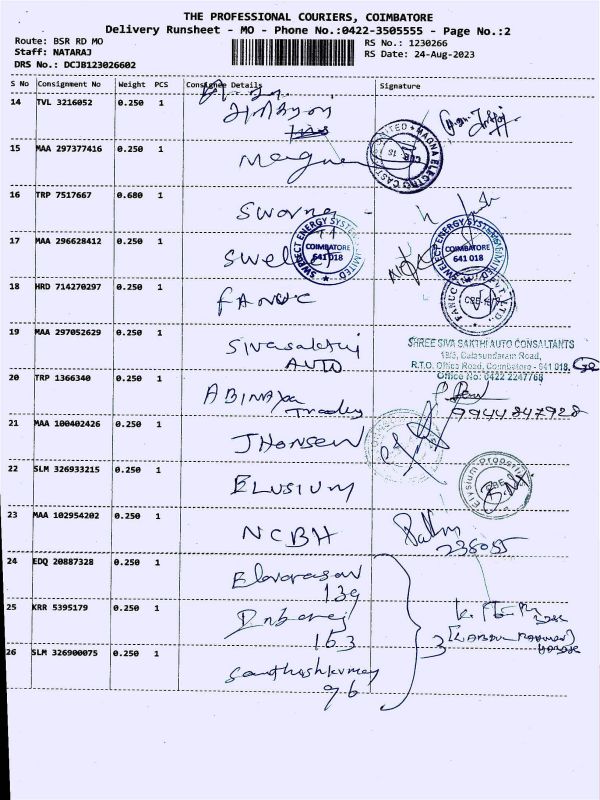 THE PROFESSIONAL COURIERS, COIMBATORE
Delivery Runsheet - MO - Phone No.:0422-3505555 - Page No.:2
Route: BSR RD MO
Staff: NATARAJ
DRS No.: DCJB123026602
RS No.: 1230266
RS Date: 24-Aug-2023
S No Consignment No Weight PCS Consignee Details Signature
14 TVL 3216052 0.250 1
15 MAA 297377416 0.250 1 Magna
MAGNA ELECTRO CAST LIMITED
CBE 18
16 TRP 7517667 0.680 1 Swarna
17 MAA 296628412 0.250 1 Swelect
SWELECT ENERGY SYSTEMS LIMITED
COIMBATORE
641 018
SWELECT ENERGY SYSTEMS LIMITED
COIMBATORE
641 018
18 HRD 714270297 0.250 1 FANUC
FANUC INDIA PVT. LTD.
CBE-18
19 MAA 297052629 0.250 1 Sivasakthi
AUTO
SHREE SIVA SAKTHI AUTO CONSULTANTS
18/5, Balasundaram Road,
R.T.O. Office Road, Coimbatore - 641 018.
Office No: 0422 2247768
20 TRP 1366340 0.250 1 ABINAYA
Trades
9944847928
21 MAA 100402426 0.250 1 JHONSEN
22 SLM 326933215 0.250 1 ELUSIUM
Elysium Properties
23 MAA 102954202 0.250 1 NCBH
238055
24 EDQ 20887328 0.250 1 Elavarasan
139
25 KRR 5395179 0.250 1 Inbaraj
153
26 SLM 326900075 0.250 1 Santhoshkumar
96
3